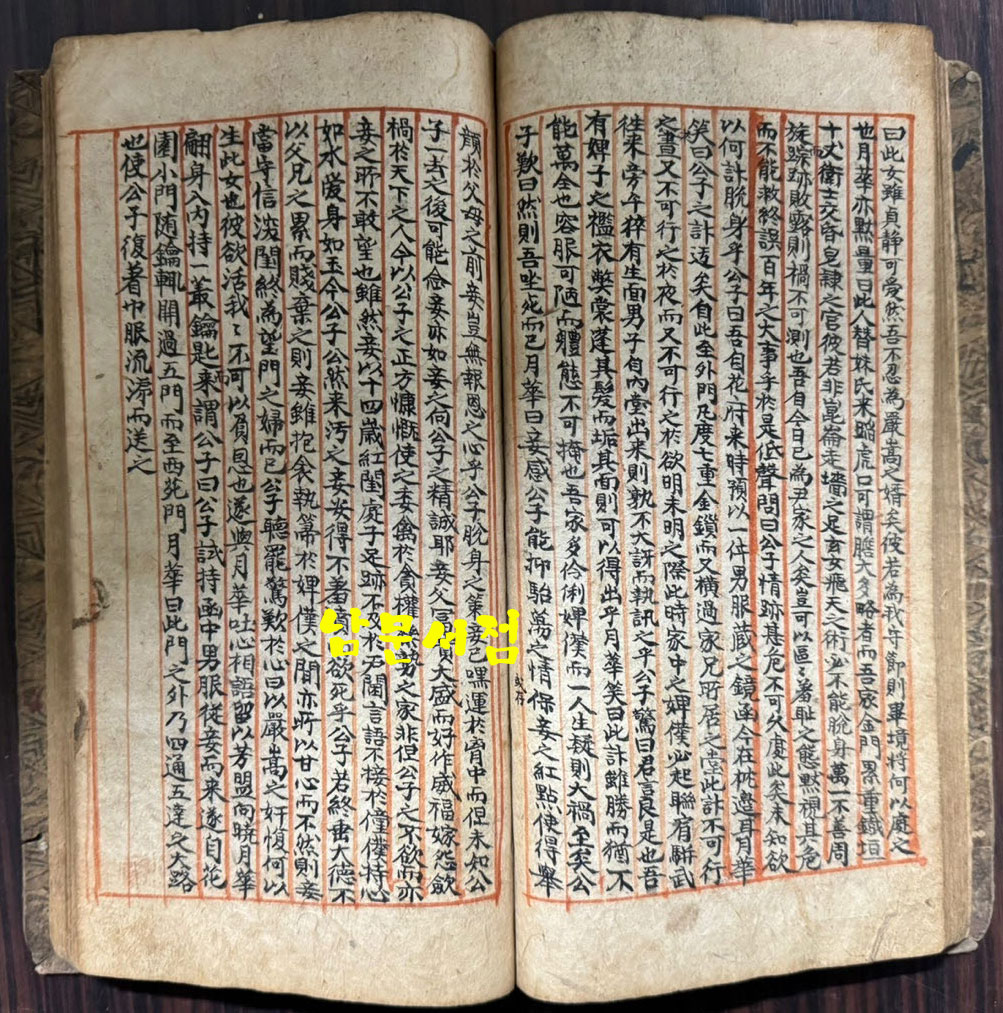 曰此女雖貞靜可爲然吾不忍為嚴嵩之婿矣彼若為我守節則畢境將何以處之
也月華亦點量曰此人替妹氏来蹈虎口可謂膽大多略者而吾家金門累重鐵垣
十丈衛士交昏皀隸之官彼若非崑崙走墻之足玄女飛天之術必不能脫身萬一不善周
旋踪跡敗露則禍不可測也吾自今日已為尹家之人矣豈可以區〻羞耻之態默視其危
而不能救終誤百年之大事乎於是低聲問曰公子情跡甚危不可久處此矣未知欲
以何計脫身乎公子曰吾自花府来時預以一件男服藏之鏡函今在枕邊耳月華
笑曰公子之計迃矣自此至外門凡度七重金鎖而又橫過家兄所居之堂此計不可行
之晝又不可行之於夜而又不可行之於欲明未明之際此時家中之婢僕必起聯肩騈武
徃来旁午猝有生面男子自內堂出来則孰不大訝而執訊之乎公子驚曰君言良是也吾
有婢子之襤衣弊裳蓬其髮而垢其面則可以得出乎月華笑曰此計雖勝而猶不
能萬全也容服可陋而軆態不可掩也吾家多伶俐婢僕而一人生疑則大禍至矣公
子歎曰然則吾坐死而已月華曰妾感公子能抑駘蕩之情保妾之紅點使得舉
顏於父母之前妾豈無報恩之心乎公子脫身之策妾已嘿運於胷中而但未知公
子一去之後可能念妾亦如妾之向公子之精誠耶妾父冨貴大盛而好作威福嫁怨歛
禍於天下之人今以公子之正方慷慨使之委禽於貪權 之家非但公子之不欲而亦
妾之所不敢望也雖然妾以十四歲紅閨處子足跡不及於石閾言語不接於僮僕持心
如水愛身如玉今公子公然来汚之妾安得不羞 欲死乎公子若終垂大德不
以父兄之累而賤棄之則妾雖抱衾執箒於婢僕之間亦所以甘心而不然則妾
當守信深閨終為望門之婦而已公子聽罷驚歎於心曰以嚴嵩之奸愎何以
生此女也彼欲活我〻不可以負恩也遂與月華吐心相語留以芳盟向曉月華
翩身入內持一叢鑰匙来謂公子曰公子試持函中男服従妾而来遂自花
園小門随鑰輒開過五門而至西苑門月華曰此門之外乃四通五達之大路
也使公子復著巾服流涕而送之
남문서점